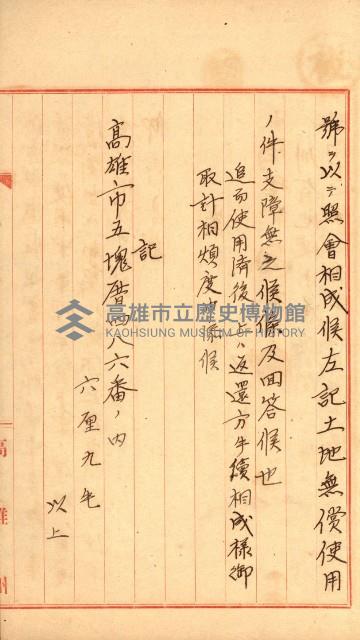 號ヲ以テ照會相成候左記土地無償使用
ノ件支障無之候條及回答候也
追而使用濟後ハ返還方手續相成樣御
取計相煩度申添候
記
高雄市五塊厝四八六番ノ内
六厘九毛
以上
高雄州
高雄市立歷史博物館
KAOHSIUNG MUSEUM OF HISTORY